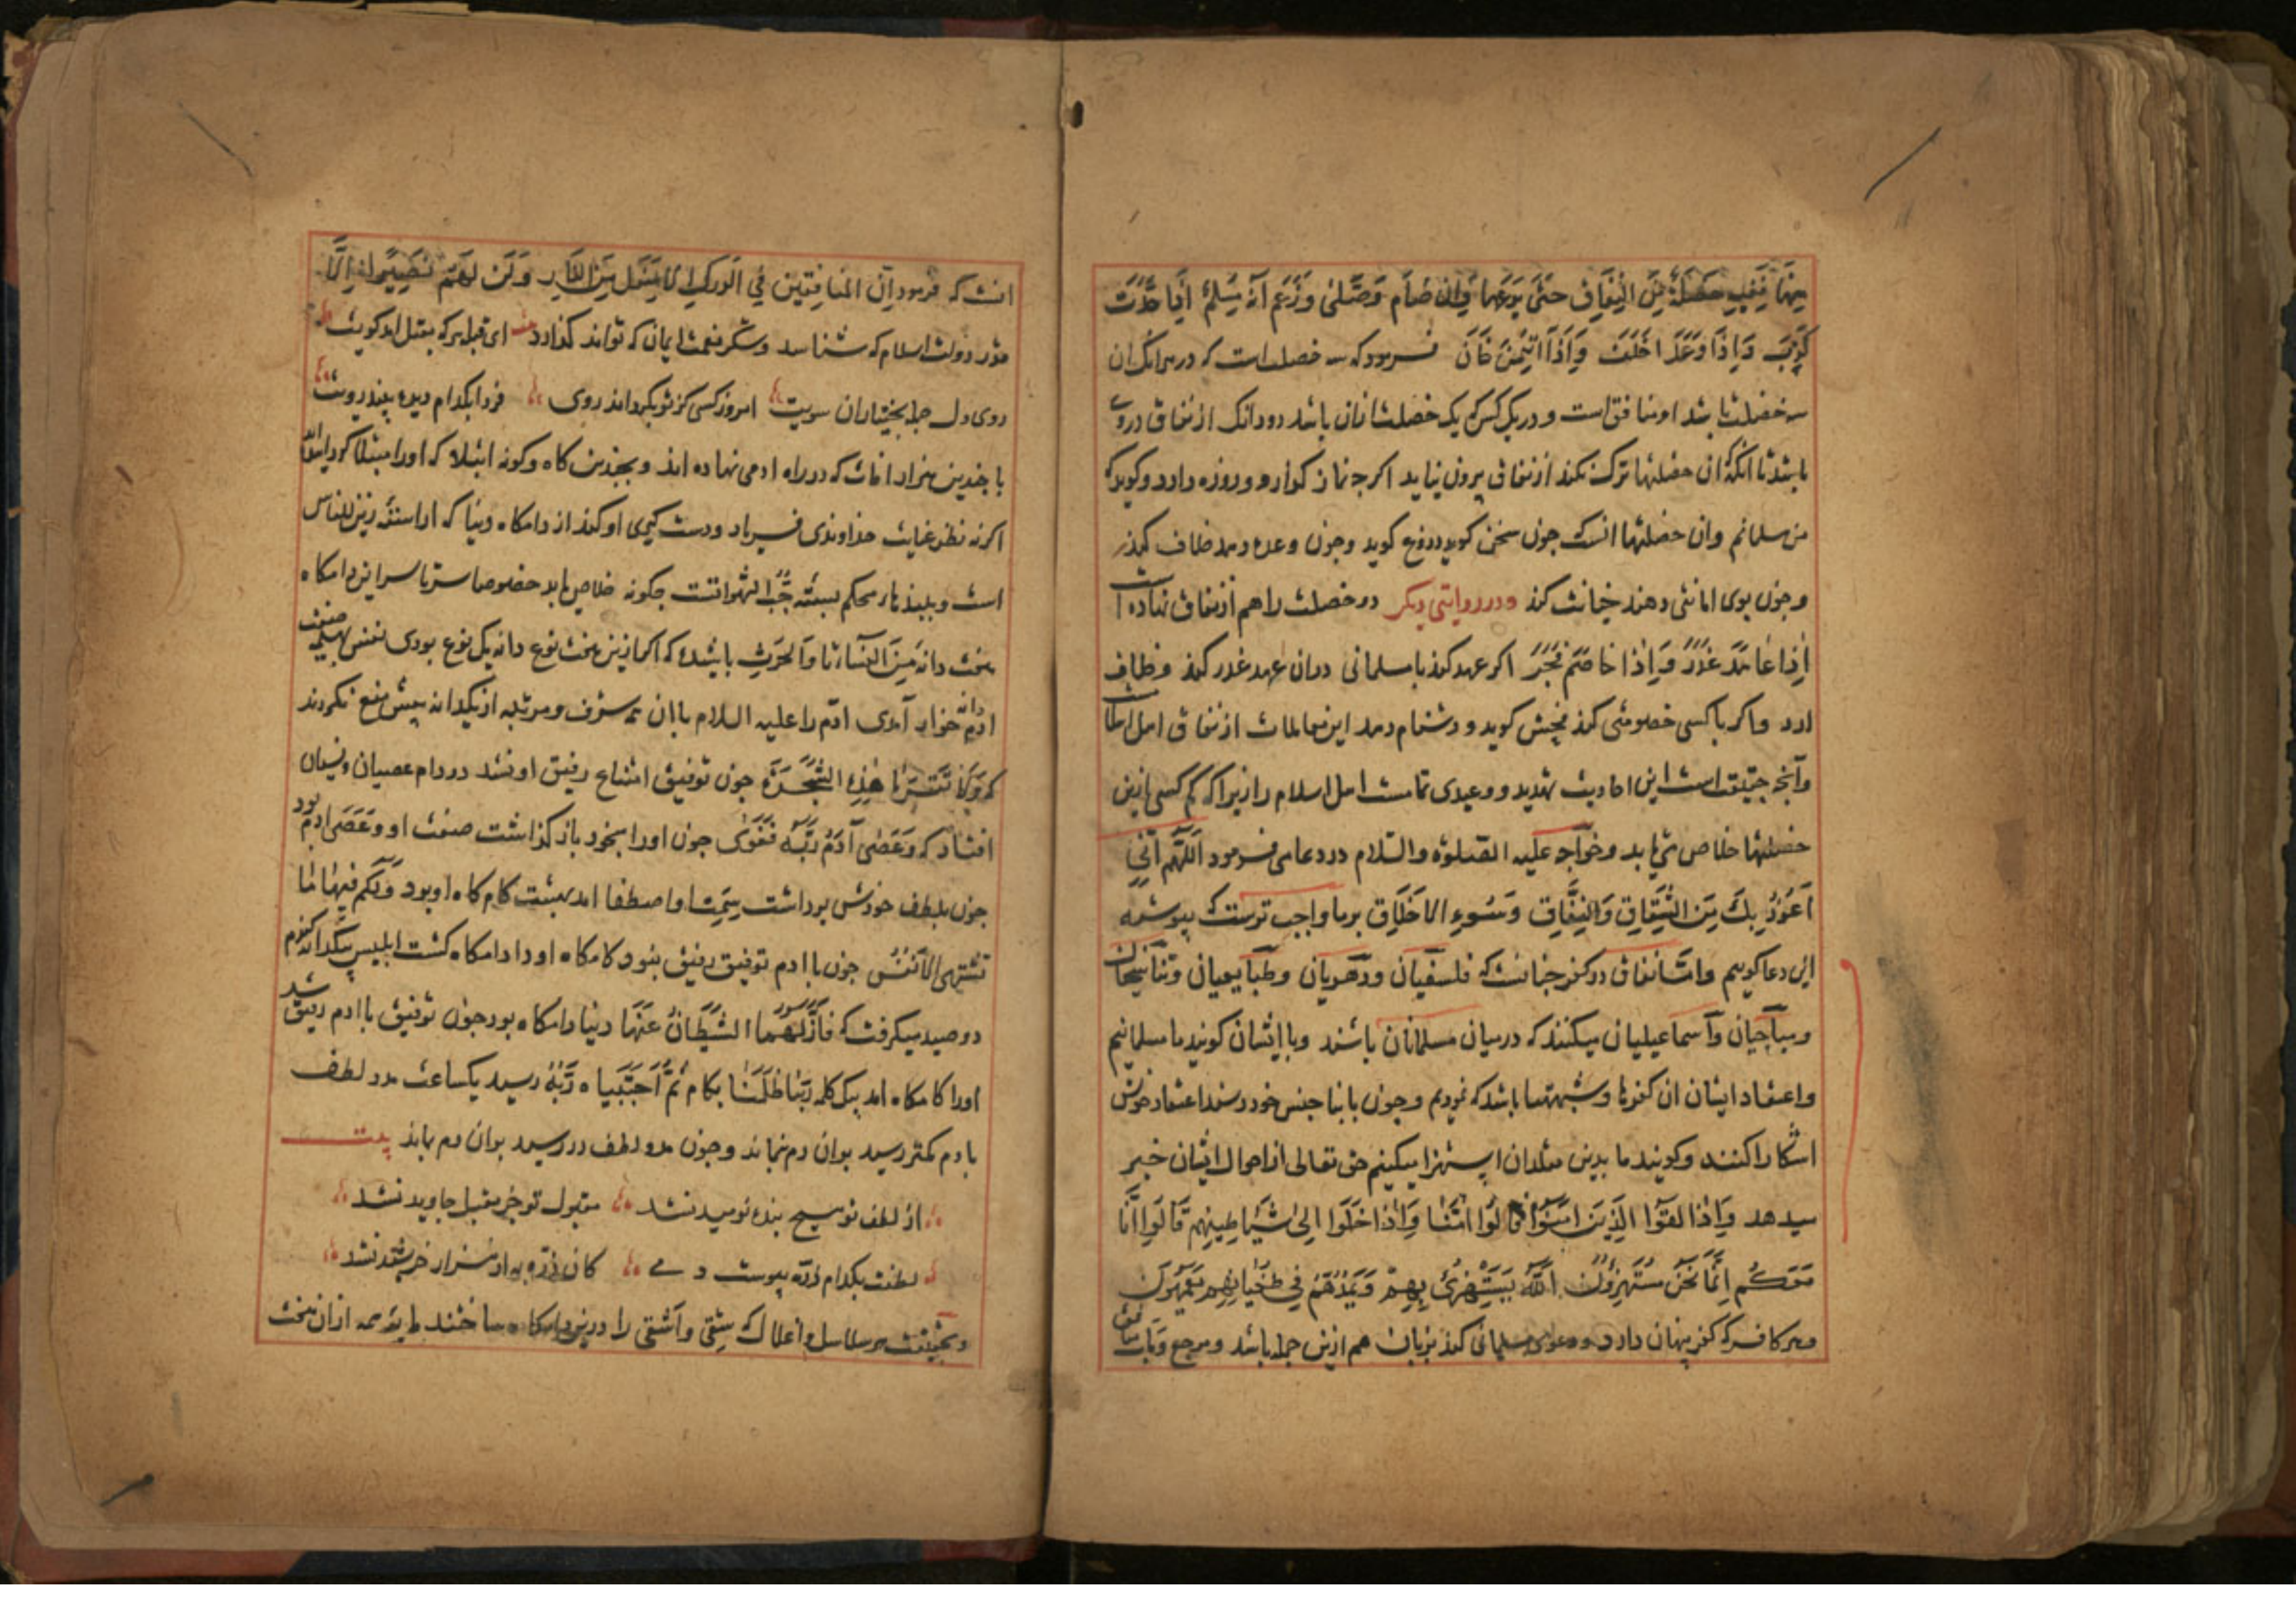 منها ففیه خصلة من النفاق حتی یدعها وان صام وصلی وزعم انه مسلم اذا حدث
کذب وَاِذَا وَعَدَ اخلف وَاِذَا ائتمن خَانَ فرمود که سه خصلت است که در هرانک ان
سه خصلت باشد او منافق است و در هرکس که یک خصلت ازان باشد دودانک از نفاق دروی
باشد تا انکه ان خصلتها ترک نکند از نفاق بیرون نیاید اکرجه نماز کزارد وروزه دارد وکوید که
من مسلمانم وان خصلتها انست که جون سخن کوید دروغ کوید وجون وعده دهد خلاف کند
وجون بوی امانتی دهند خیانت کند ودر روایتی دیکر دو خصلت را هم از نفاق نهاده است
اِذَا عَاهَدَ غَدَرَ وَاِذَا خَاصَمَ فَجَرَ اکر عهد کند با مسلمانی دران عهد غدر کند و خلاف
ارد واکر با کسی خصومتی کند فحش کوید و دشنام دهد این معاملات از نفاق اهل است
وآنجه حقیقت است این احادیث تهدید و وعیدی تمامست اهل اسلام را زیرا که کم کسی ازین
خصلتها خلاص می یابد وخواجه علیه الصلوة والسلام در دعا می فرمود اَللّهُمَّ اِنّی
اَعُوذُ بِكَ مِنَ الشِّقَاقِ وَالنِّفَاقِ وَسُوءِ الاَخلَاقِ بر ما واجب ترست که پیوسته
این دعا کوییم وامّا نفاق در کفر جنانست که فلسفیان ودهریان وطبایعیان وتناسخیان
ومباحیان واسماعیلیان میکنند که درمیان مسلمانان باشند وبا ایشان کویند ما مسلمانیم
واعتقاد ایشان ان کفرها وشبهتها باشد که نمودیم وجون با ابنا جنس خود رسند اعتقاد خویش
اشکارا کنند وکویند ما بدین مقلدان استهزا میکنیم حق تعالی از احوال ایشان خبر
میدهد وَاِذَا لَقُوا الَّذِینَ امَنُوا قَالُوا امَنَّا وَاِذَا خَلَوا اِلیٰ شَیَاطِینِهِم قَالُوا اِنَّا
مَعَكُم اِنَّمَا نَحنُ مُستَهزِؤُنَ اَللّهُ یَستَهزِئُ بِهِم وَیَمُدُّهُم فِی طُغیَانِهِم یَعمَهُونَ
وهر کافر که کفر پنهان دارد ودعوی مسلمانی کند بزبان هم ازین جمله باشد ومرجع ومآب
انست که فرمود اِنَّ المُنَافِقِینَ فِی الدَّركِ الاَسفَلِ مِنَ النَّارِ وَلَن تَجِدَ لَهُم نَصِیراً اِلَّا
قدر دولت اسلام که شناسد وشکر نعمت ایمان که تواند کذارد بیت ای قبله هرکه مقبل امد کویت
روی دل جمله بختیاران سویت امروز کسی کز تو بکرداند روی فردا بکدام دیده بیند رویت
با جندین هزار افات که در راه ادمی نهاده اند وبجندین کونه ابتلا که اورا مبتلا کردانیده اند
اکرنه نظر عنایت خداوندی فریاد ودست کیری او کند از دامکاه دنیا که اراسته زین للناس
است وببند بار محکم بسته حُبُّ الشَّهَوَاتست جکونه خلاص یابد خصوصا سرتاسر این دامکاه
هفت دانه مِنَ النِّسَاءِ تا وَالحَرثِ باشیده که اکر ازین هفت نوع دانه یک نوع بودی نفس بهیمه صفت
ادم دانه خوار آمدی ادم را علیه السلام با ان همه شرف ومرتبه از یکدانه بیش منع نکردند
که وَلَا تَقرَبَا هٰذِهِ الشَّجَرَةَ جون توفیق امتناع رفیق او نشد در دام عصیان ونسیان
افتاد که وَعَصٰی آدَمُ رَبَّهُ فَغَوٰی جون اورا بخود باز کذاشت صفت او وَعَصَی ادم بود
جون بلطف خودش برداشت سمت او اصطفا امد بهشت کام کاه او بود وَلَكُم فِیهَا مَا
تَشتَهِی الاَنفُسُ جون با ادم توفیق رفیق نبود کامکاه اورا دامکاه کشت ابلیس بیکدانه کندم
دو صید میکرفت که فَاَزَلَّهُمَا الشَّیطَانُ عَنهَا دنیا دامکاه بود جون توفیق با ادم رفیق شد
اورا کامکاه امد بیک کلمه رَبَّنَا ظَلَمنَا بکام ثُمَّ اجتَبَیاهُ رَبُّهُ رسید یکساعت مدد لطف
با دم کمتر رسید بوان دم نماند وجون مدد لطف در رسید بوان دم بماند بیت
از لطف تو هیچ بنده نومید نشد مقبول تو جز مقبل جاوید نشد
لطفت بکدام ذره پیوست دمی کان ذره به از هزار خرشید نشد
وبحقیقت هر سلاسل واغلال که شقی واشقی را درین دامکاه ساختند مایه همه ازان هفت